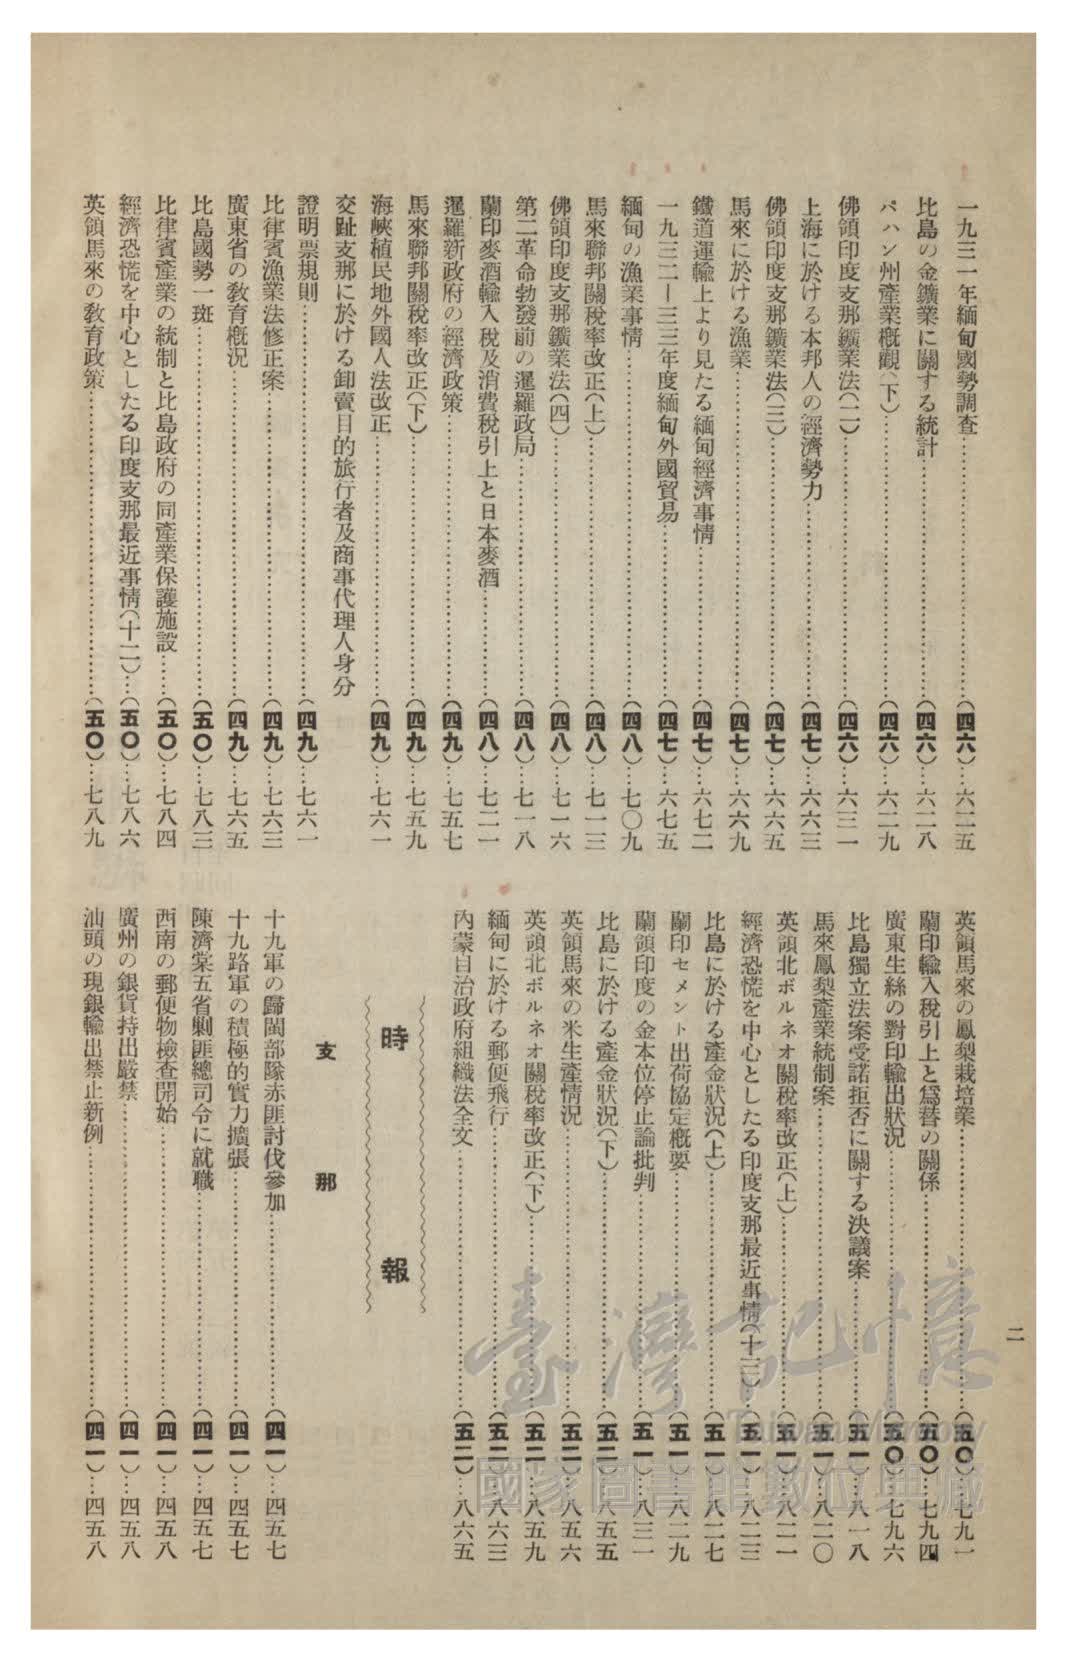 一九三一年緬甸國勢調査……(四六)…六二五
比島の金鑛業に關する統計……(四六)…六二八
パハン州產業概觀(下)……(四六)…六二九
佛領印度支那鑛業法(二)……(四六)…六三一
上海に於ける本邦人の經濟勢力……(四七)…六六三
佛領印度支那鑛業法(三)……(四七)…六六五
馬來に於ける漁業……(四七)…六六九
鐵道運輸上より見たる緬甸經濟事情……(四七)…六七二
一九三二ー三三年度緬甸外國貿易……(四七)…六七五
緬甸の漁業事情……(四八)…七〇九
馬來聯邦關稅率改正(上)……(四八)…七一三
佛領印度支那鑛業法(四)……(四八)…七一六
第二革命勃發前の暹羅政局……(四八)…七一八
蘭印麥酒輸入稅及消費稅引上と日本麥酒……(四八)…七二一
暹羅新政府の經濟政策……(四九)…七五七
馬來聯邦關稅率改正(下)……(四九)…七五九
海峽植民地外國人法改正……(四九)…七六一
交趾支那に於ける卸賣目的旅行者及商事代理人身分
證明票規則……(四九)…七六一
比律賓漁業法修正案……(四九)…七六三
廣東省の敎育概況……(四九)…七六五
比島國勢一斑……(五〇)…七八三
比律賓產業の統制と比島政府の同產業保護施設……(五〇)…七八四
經濟恐慌を中心としたる印度支那最近事情(十二)…(五〇)…七八六
英領馬來の敎育政策……(五〇)…七八九
英領馬來の鳳梨栽培業……(五〇)…七九一
蘭印輸入稅引上と爲替の關係……(五〇)…七九四
廣東生絲の對印輸出狀況……(五〇)…七九六
比島獨立法案受諾拒否に關する決議案……(五一)…八一八
馬來鳳梨產業統制案……(五一)…八二〇
英領北ボルネオ關稅率改正(上)……(五一)…八二一
經濟恐慌を中心としたる印度支那最近事情(十三)…(五一)…八二三
比島に於ける產金狀況(上)……(五一)…八二七
蘭印セメント出荷協定概要……(五一)…八二九
蘭領印度の金本位停止論批判……(五一)…八三一
比島に於ける產金狀況(下)……(五二)…八五五
英領馬來の米生產情況……(五二)…八五六
英領北ボルネオ關稅率改正(下)……(五二)…八五九
緬甸に於ける郵便飛行……(五二)…八六三
內蒙自治政府組織法全文……(五二)…八六五
時報
支那
十九軍の歸閩部隊赤匪討伐參加……(四一)…四五七
十九路軍の積極的實力擴張……(四一)…四五七
陳濟棠五省剿匪總司令に就職……(四一)…四五七
西南の郵便物檢查開始……(四一)…四五八
廣州の銀貨持出嚴禁……(四一)…四五八
汕頭の現銀輸出禁止新例……(四一)…四五八
二
臺灣記憶
Taiwan Memory
國家圖書館數位典藏